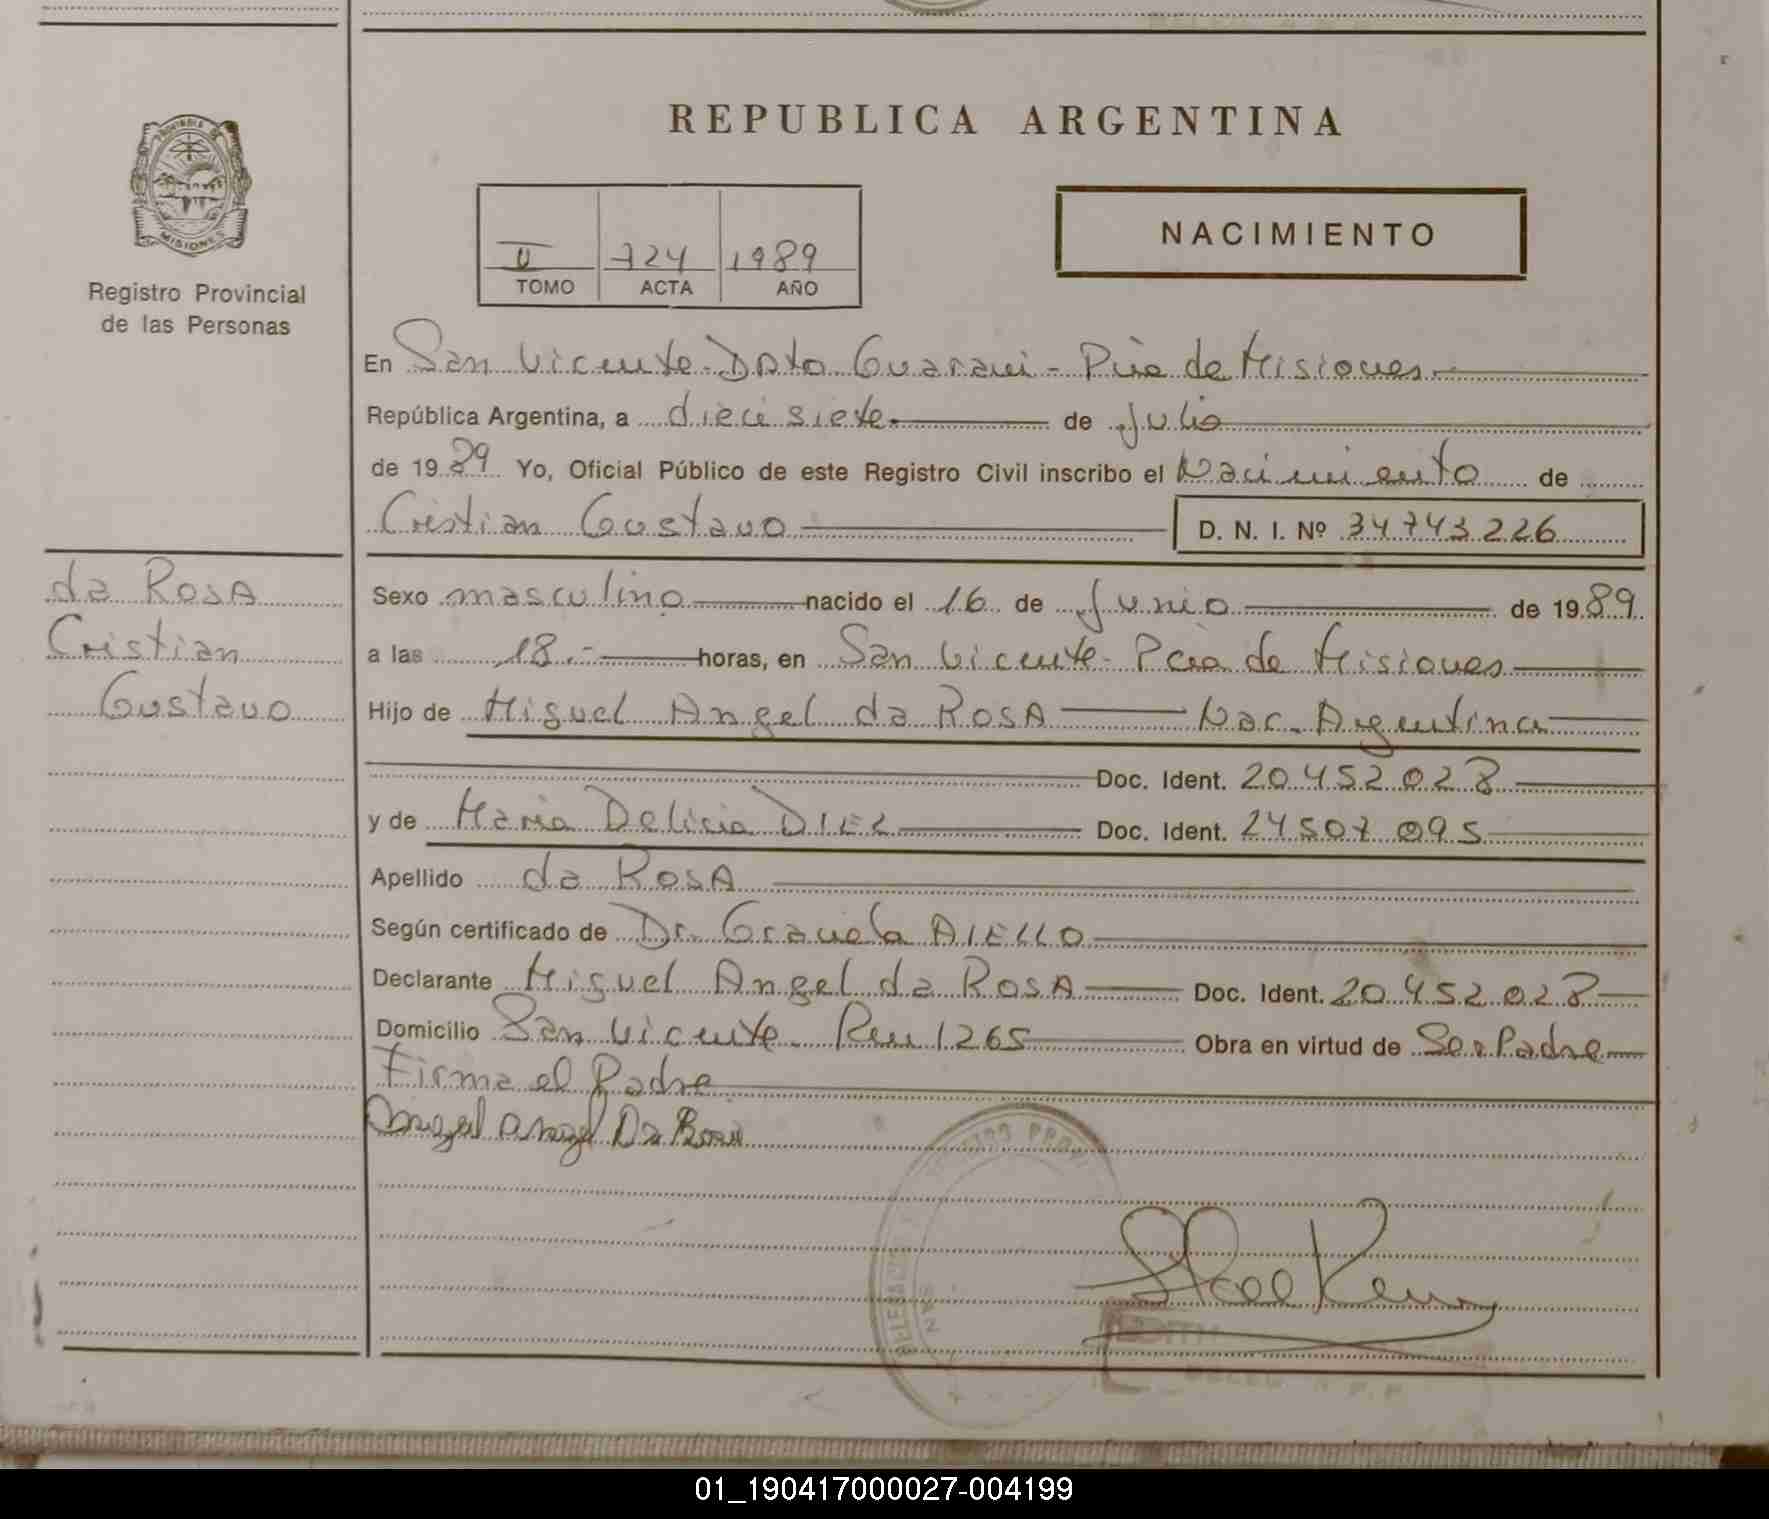 REPUBLICA ARGENTINA
PROVINCIA DE
MISIONES
Registro Provincial
de las Personas
II 724 1989
TOMO ACTA AÑO
NACIMIENTO
En San Vicente - Dpto Guarani - Pcia de Misiones.
República Argentina, a diecisiete de Julio
de 1989 Yo, Oficial Público de este Registro Civil inscribo el Nacimiento de
Cristian Gustavo D. N. I. Nº 34743226
da ROSA
Cristian
Gustavo
Sexo masculino nacido el 16 de Junio de 1989
a las 18.- horas, en San Vicente - Pcia de Misiones
Hijo de Miguel Angel da ROSA Nac. Argentina
Doc. Ident. 20.452.028
y de Maria Delicia DIEL Doc. Ident. 24507095
Apellido da ROSA
Según certificado de Dr. Graciela AIELLO
Declarante Miguel Angel da ROSA Doc. Ident. 20.452.028
Domicilio San Vicente 1265 Obra en virtud de Ser Padre
Firma el Padre
Miguel Angel Da Rosa
EDITH
01_190417000027-004199